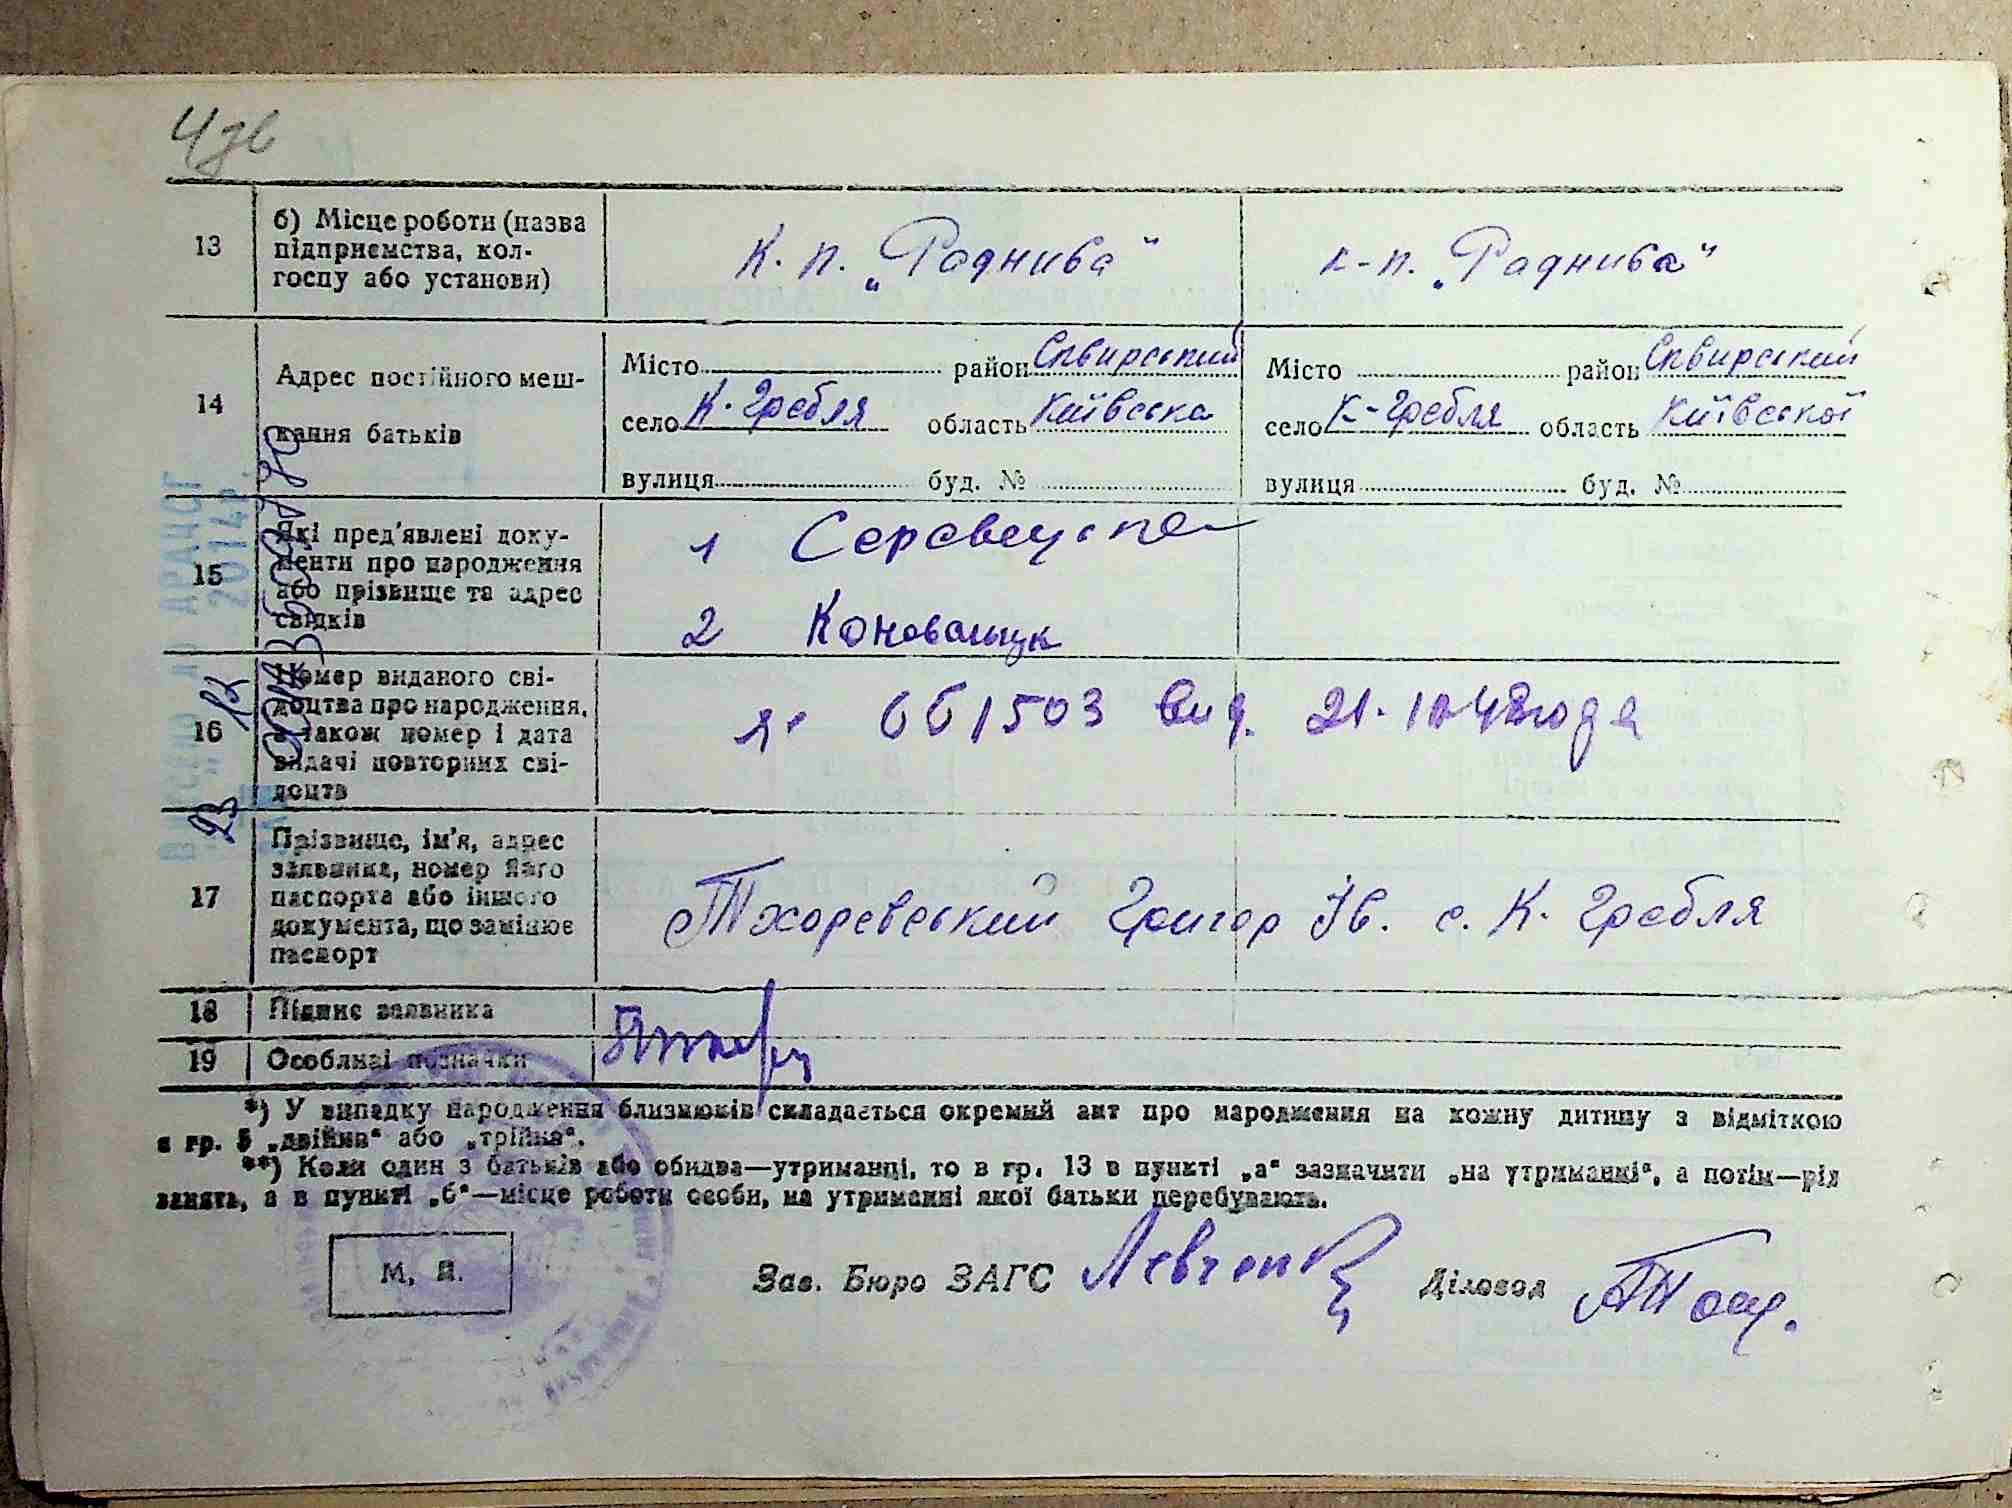 4зв
13 б) Місце роботи (назва
підприємства, кол-
госпу або установи)
К. п. „Раднива“ к-п. „Раднива“
14 Адрес постійного меш-
кання батьків
Місто район Сквирський Місто район Сквирский
село К. Гребля область Київська село К-Гребля область Київської
вулиця буд. № вулиця буд. №
15 Які пред'явлені доку-
менти про народження
або прізвище та адрес
свідків
1
2 Коновальчук
16 Номер виданого сві-
доцтва про народження,
а також номер і дата
видачі повторних сві-
доцтв
661503 вид. 21. года
17 Прізвище, ім'я, адрес
заявника, номер його
паспорта або іншого
документа, що замінює
паспорт
Тхоревский Григор Ів. с. К. Гребля
18 Підпис заявника
19 Особливі позначки
*) У випадку народження близнюків складається окремий акт про народження на кожну дитину з відміткою
в гр. 5 „двійня“ або „трійня“.
**) Коли один з батьків або обидва—утриманці, то в гр. 13 в пункті „а“ зазначити „на утриманні“, а потім—рід
занять, а в пункті „б“—місце роботи особи, на утриманні якої батьки перебувають.
М. П. Зав. Бюро ЗАГС Левченко Діловод
Внесено до ДРАЦСГ
2014р.